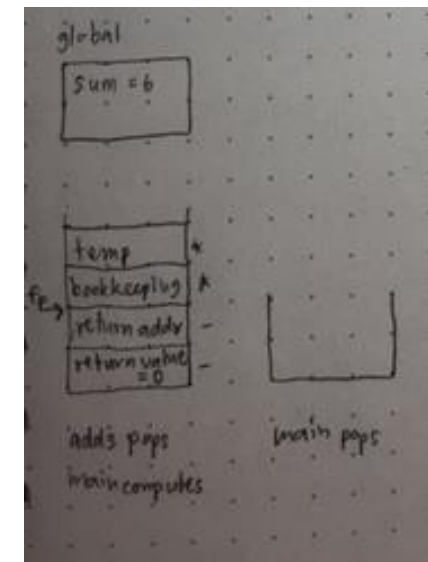 global
sum = 6
temp *
bookkeeping *
fp →
return addr -
return value -
= 0
add3 pops
main computes
main pops